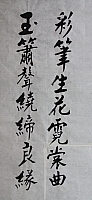 彩筆生花霓裳曲
玉簫聲繞締良緣